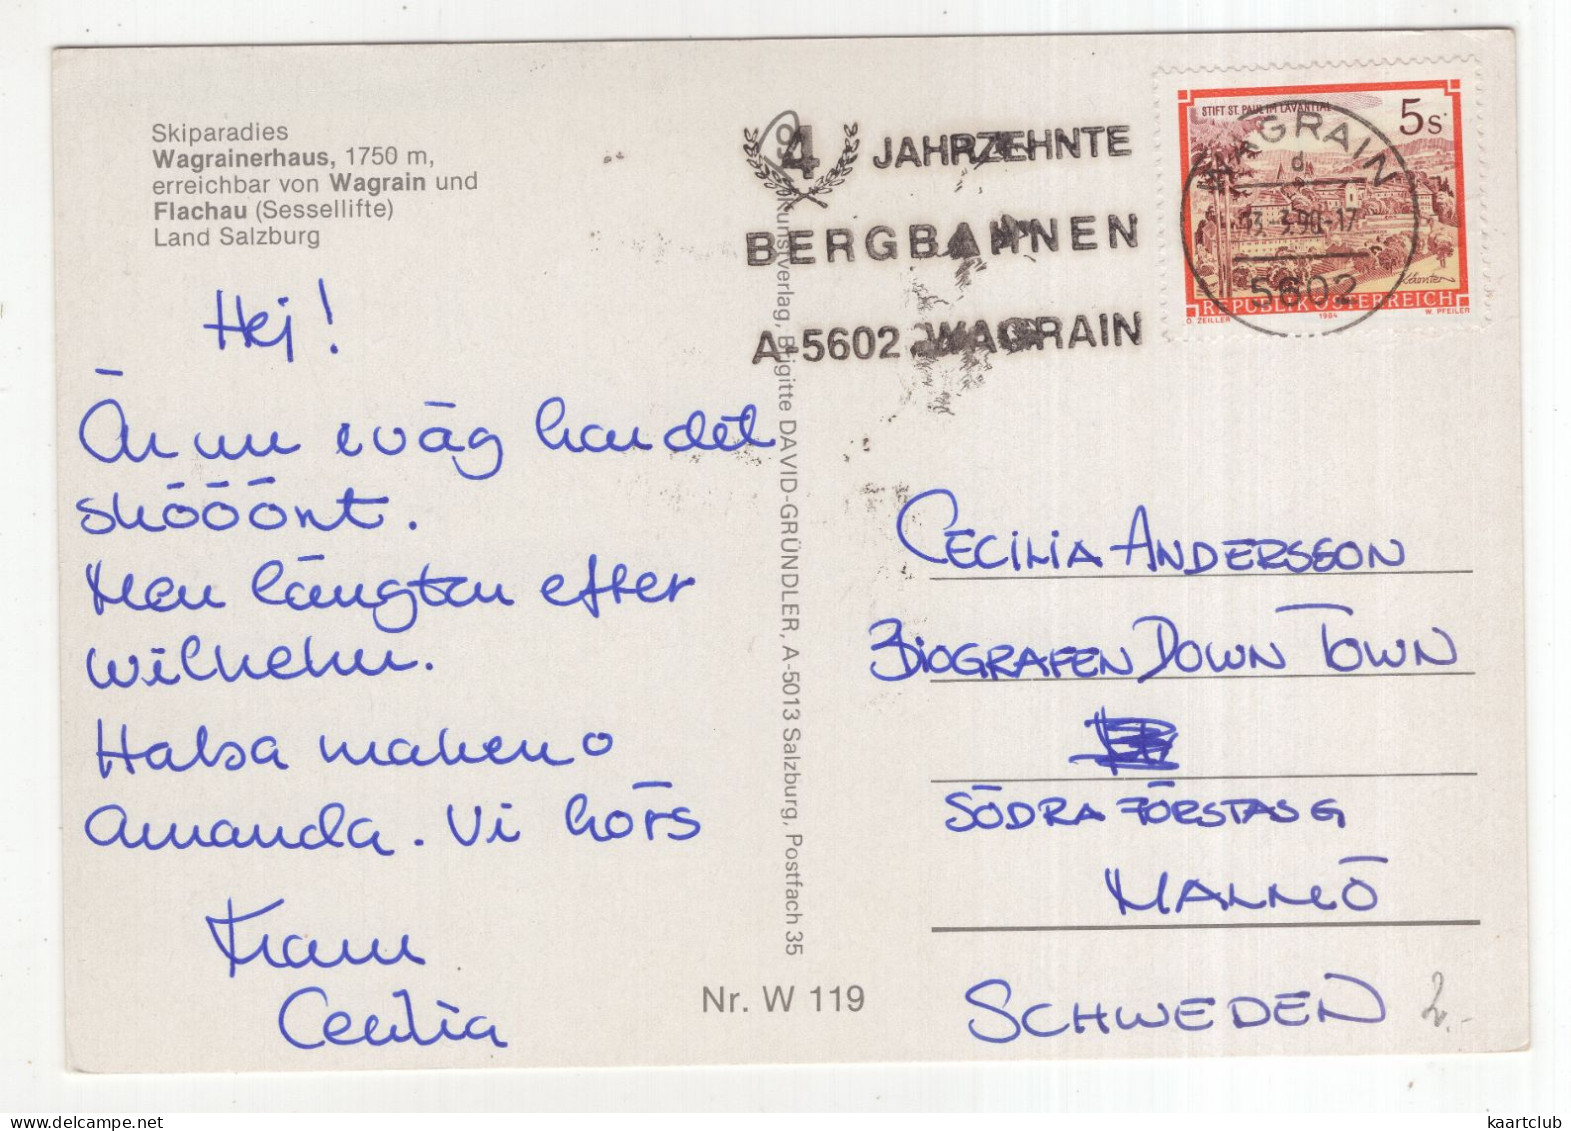 Skiparadies
Wagrainerhaus, 1750 m,
erreichbar von Wagrain und
Flachau (Sessellifte)
Land Salzburg
Hej!
Är nu iväg har det
sköööönt.
Men längtan efter
wilhelm.
Halsa maken o
Amanda. Vi hörs
Kram
Cecilia
Kunstverlag, Brigitte DAVID-GRÜNDLER, A-5013 Salzburg, Postfach 35
Nr. W 119
4 JAHRZEHNTE
BERGBAHNEN
A-5602 WAGRAIN
STIFT ST. PAUL IM LAVANTTAL
5s
WAGRAIN
d
13.-3.90-17
5602
REPUBLIK ÖSTERREICH
O. ZEILLER
1984
W. PFEILER
CECILIA ANDERSSON
BIOGRAFEN DOWN TOWN
SÖDRA FÖRSTAS G
MALMÖ
SCHWEDEN
2.-
kaartclub